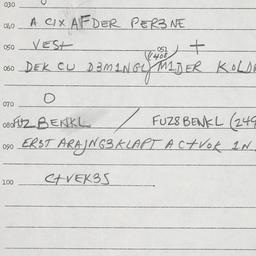 030
040 A CIX AFDER PER3NE
050 VEST +
051 (408)
060 DEK CU D3M1NGL M1DER KOLD
070 O
080 FUZ BENKL / FUZS BENKL (249
090 ERST ARAJNGSKLAPT A C+VOK 1N
100 C+VEK3S